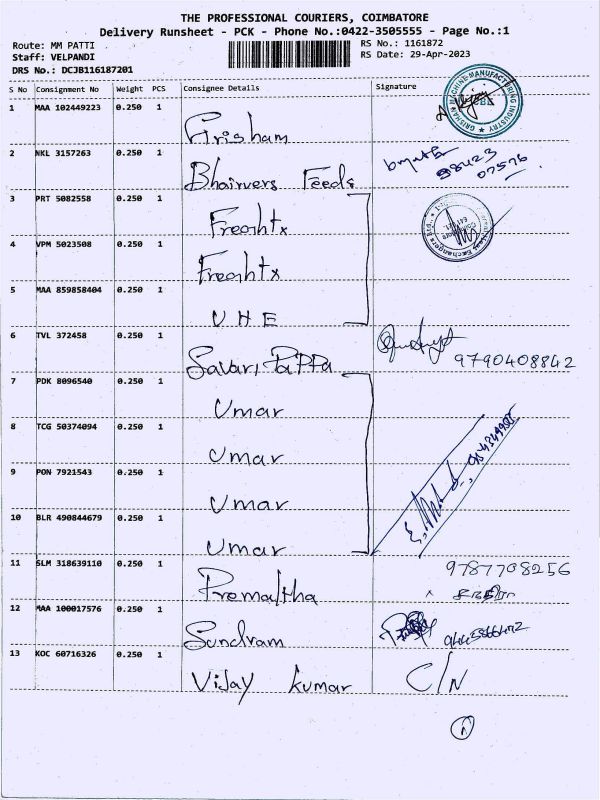 THE PROFESSIONAL COURIERS, COIMBATORE
Delivery Runsheet - PCK - Phone No.:0422-3505555 - Page No.:1
Route: MM PATTI
RS No.: 1161872
Staff: VELPANDI
RS Date: 29-Apr-2023
DRS No.: DCJB116187201
S No Consignment No Weight PCS Consignee Details Signature
1 MAA 102449223 0.250 1
Grisham
2 NKL 3157263 0.250 1
98423
07576
Bhairvers Feeds
3 PRT 5082558 0.250 1
Freshtx
4 VPM 5023508 0.250 1
Freshtx
5 MAA 859858404 0.250 1
U H E
6 TVL 372458 0.250 1
Savari Pappa 9790408842
7 PDK 8096540 0.250 1
Umar
8 TCG 50374094 0.250 1
Umar
9 PON 7921543 0.250 1
Umar
10 BLR 490844679 0.250 1
Umar
11 SLM 318639110 0.250 1
9787708256
Premaltha
12 MAA 100017576 0.250 1
Sundram
13 KOC 60716326 0.250 1
Vijay Kumar C/N